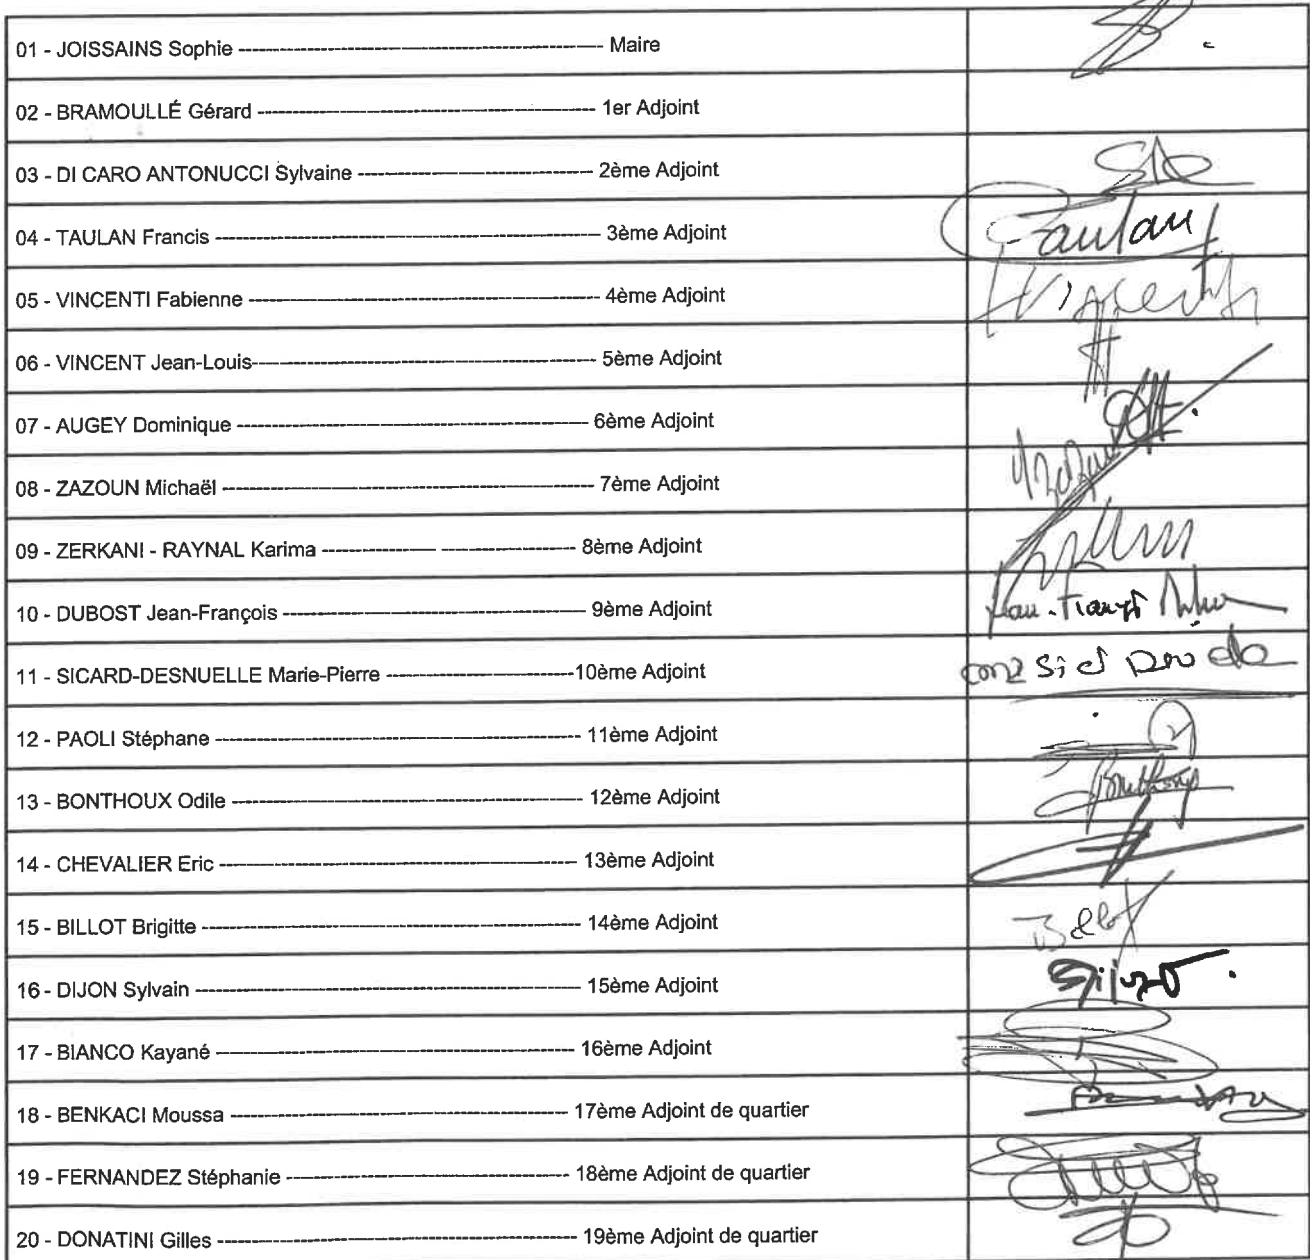 01 - JOISSAINS Sophie ---------------------------------------- Maire
02 - BRAMOULLÉ Gérard ---------------------------------------- 1er Adjoint
03 - DI CARO ANTONUCCI Sylvaine ---------------------------------------- 2ème Adjoint
04 - TAULAN Francis ---------------------------------------- 3ème Adjoint Taulan
05 - VINCENTI Fabienne ---------------------------------------- 4ème Adjoint Vincenti
06 - VINCENT Jean-Louis---------------------------------------- 5ème Adjoint
07 - AUGEY Dominique ---------------------------------------- 6ème Adjoint
08 - ZAZOUN Michaël ---------------------------------------- 7ème Adjoint
09 - ZERKANI - RAYNAL Karima -------------- ---------------- 8ème Adjoint
10 - DUBOST Jean-François ---------------------------------------- 9ème Adjoint
11 - SICARD-DESNUELLE Marie-Pierre -----------------------10ème Adjoint
12 - PAOLI Stéphane ---------------------------------------- 11ème Adjoint
13 - BONTHOUX Odile ---------------------------------------- 12ème Adjoint
14 - CHEVALIER Eric ---------------------------------------- 13ème Adjoint
15 - BILLOT Brigitte ---------------------------------------- 14ème Adjoint
16 - DIJON Sylvain ---------------------------------------- 15ème Adjoint
17 - BIANCO Kayané ---------------------------------------- 16ème Adjoint
18 - BENKACI Moussa ---------------------------------------- 17ème Adjoint de quartier
19 - FERNANDEZ Stéphanie ---------------------------------------- 18ème Adjoint de quartier
20 - DONATINI Gilles ---------------------------------------- 19ème Adjoint de quartier